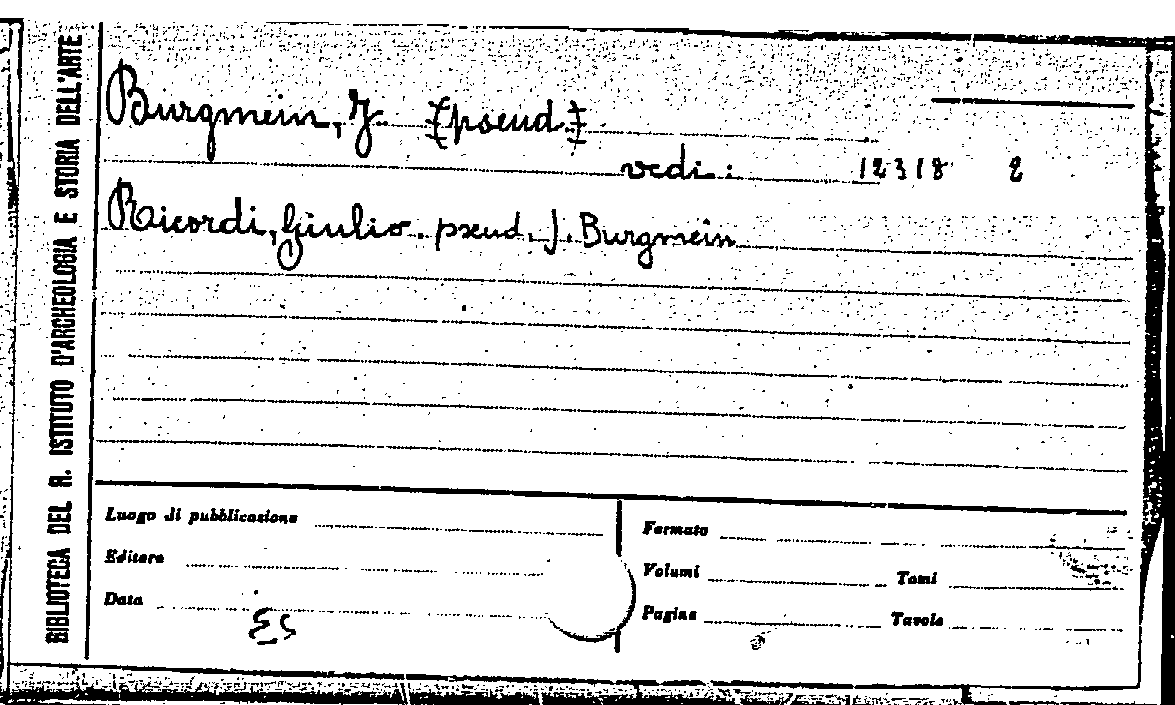 BIBLIOTECA DEL R. ISTITUTO D'ARCHEOLOGIA E STORIA DELL'ARTE
Burgmein, J. [pseud.]
vedi: 12318 2
Ricordi, Giulio. pseud. J. Burgmein
Luogo di pubblicazione
Editore
Data
Formato
Volumi Tomi
Pagine Tavole